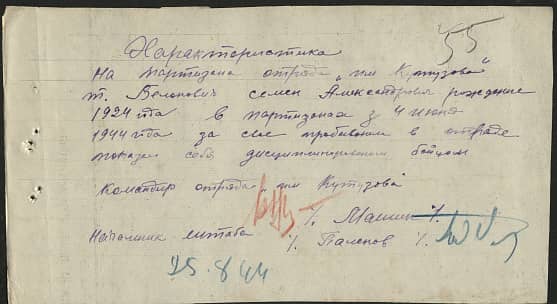 55
Характеристика
На партизана отряда „им Кутузова"
т. Велькович семен Александрович рождение
1924 года в партизанах з 4 июня
1944 года за свое пребывание в отряде
показал себя дисциплинированим бойцом
Командир отряда „им Кутузова"
/. Машин /.
Начальник штаба /. Паленов /.
25.8.44